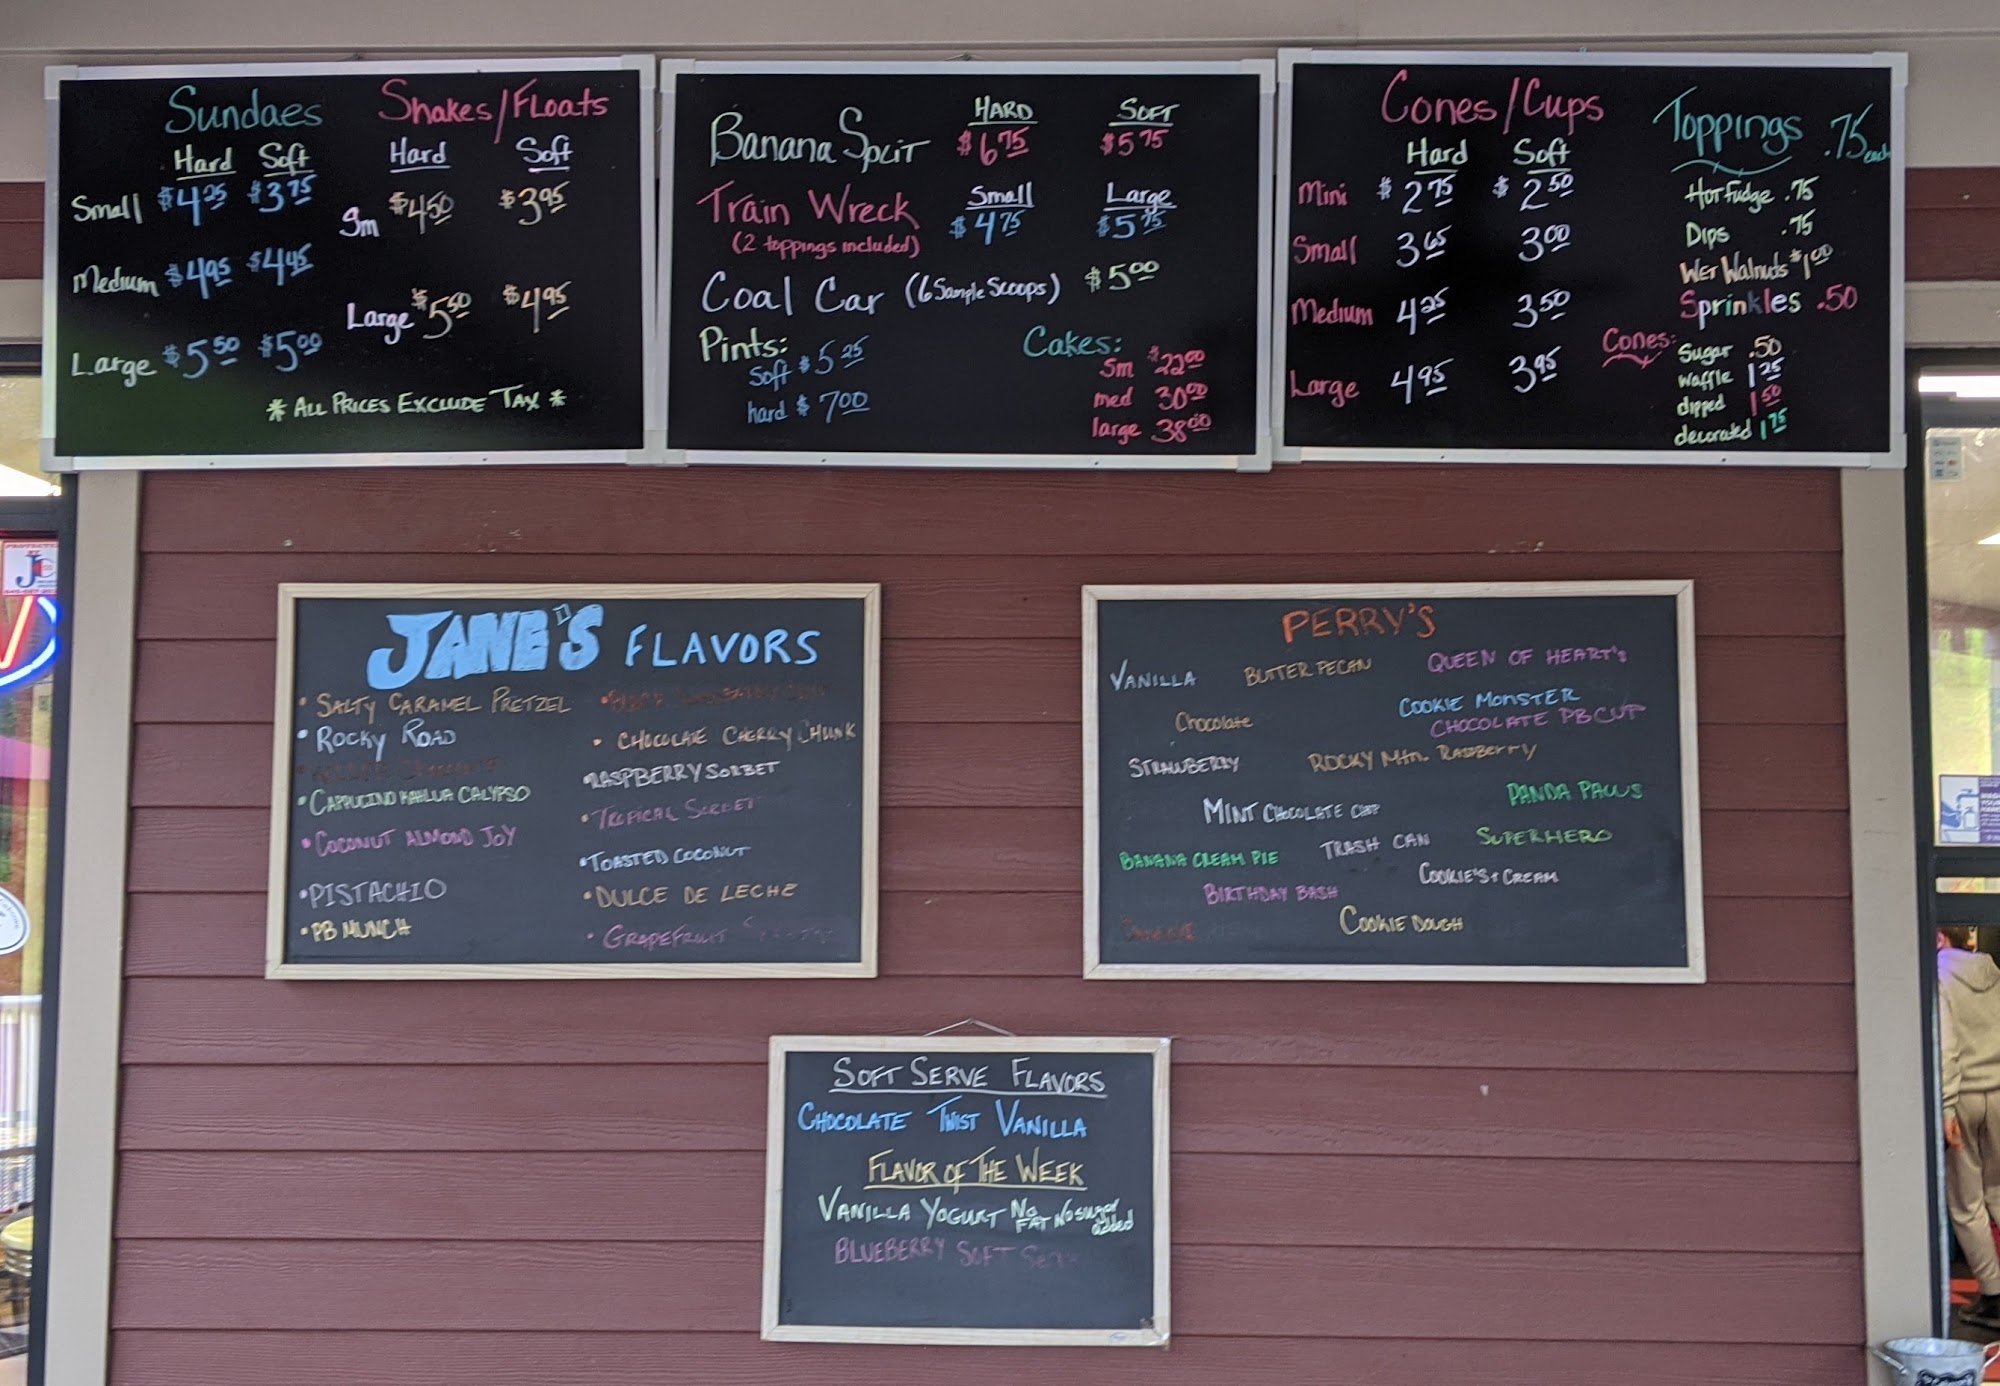 Sundaes
Hard Soft
Small $4.25 $3.75
Medium $4.95 $4.45
Large $5.50 $5.00
Shakes/Floats
Hard Soft
Sm $4.50 $3.95
Large $5.50 $4.95
* ALL PRICES EXCLUDE TAX *
HARD SOFT
Banana Split $6.75 $5.75
Train Wreck Small Large
(2 toppings included) $4.75 $5.75
Coal Car (6 Sample Scoops) $5.00
Pints:
Soft $5.25
hard $7.00
Cakes:
Sm $22.00
med 30.00
large 38.00
Cones/Cups
Hard Soft
Mini $2.75 $2.50
Small 3.65 3.00
Medium 4.25 3.50
Large 4.95 3.95
Toppings .75 each
Hot Fudge .75
Dips .75
Wet Walnuts $1.00
Sprinkles .50
Cones:
Sugar .50
waffle 1.25
dipped 1.50
decorated 1.75
JANE'S FLAVORS
• SALTY CARAMEL PRETZEL
• ROCKY ROAD
• CAPPUCINO KAHLUA CALYPSO
• COCONUT ALMOND JOY
• PISTACHIO
• PB MUNCH
• CHOCOLATE CHERRY CHUNK
• RASPBERRY SORBET
• TROPICAL SORBET
• TOASTED COCONUT
• DULCE DE LECHE
• GRAPEFRUIT
PERRY'S
VANILLA BUTTER PECAN QUEEN OF HEART'S
COOKIE MONSTER
Chocolate CHOCOLATE PB CUP
STRAWBERRY ROCKY Mtn. RASPBERRY
PANDA PAWS
MINT CHOCOLATE CHIP
TRASH CAN SUPERHERO
BANANA CREAM PIE
COOKIE'S + CREAM
BIRTHDAY BASH
COOKIE DOUGH
SOFT SERVE FLAVORS
CHOCOLATE TWIST VANILLA
FLAVOR OF THE WEEK
VANILLA YOGURT NO FAT NO sugar added
BLUEBERRY SOFT Serve